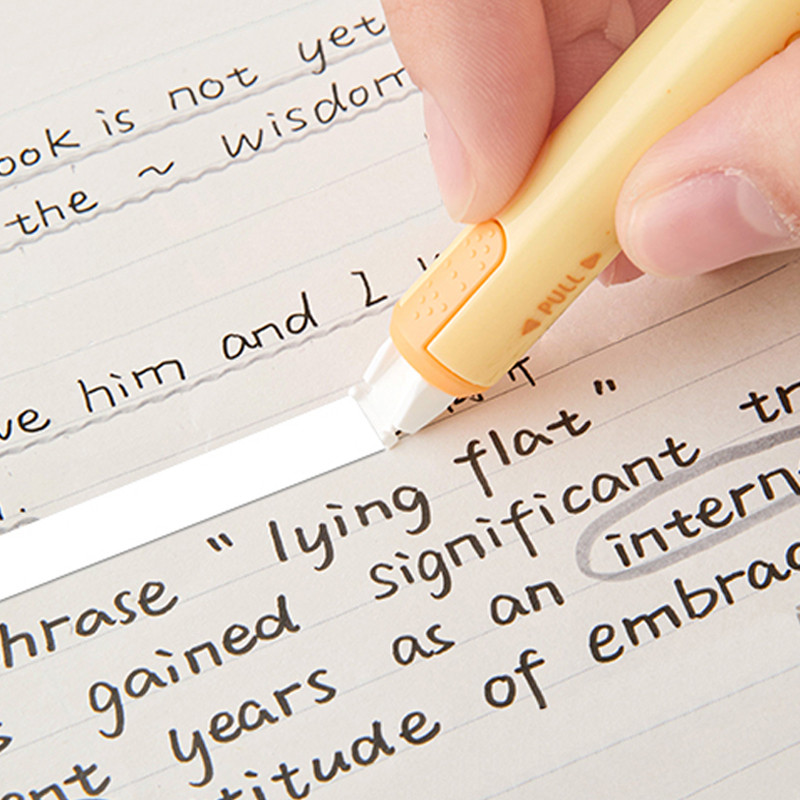 ook is not yet
the ~ wisdom
ve him and I
PULL
hrase "lying flat"
gained significant tr
ent years as an intern
titude of embrac